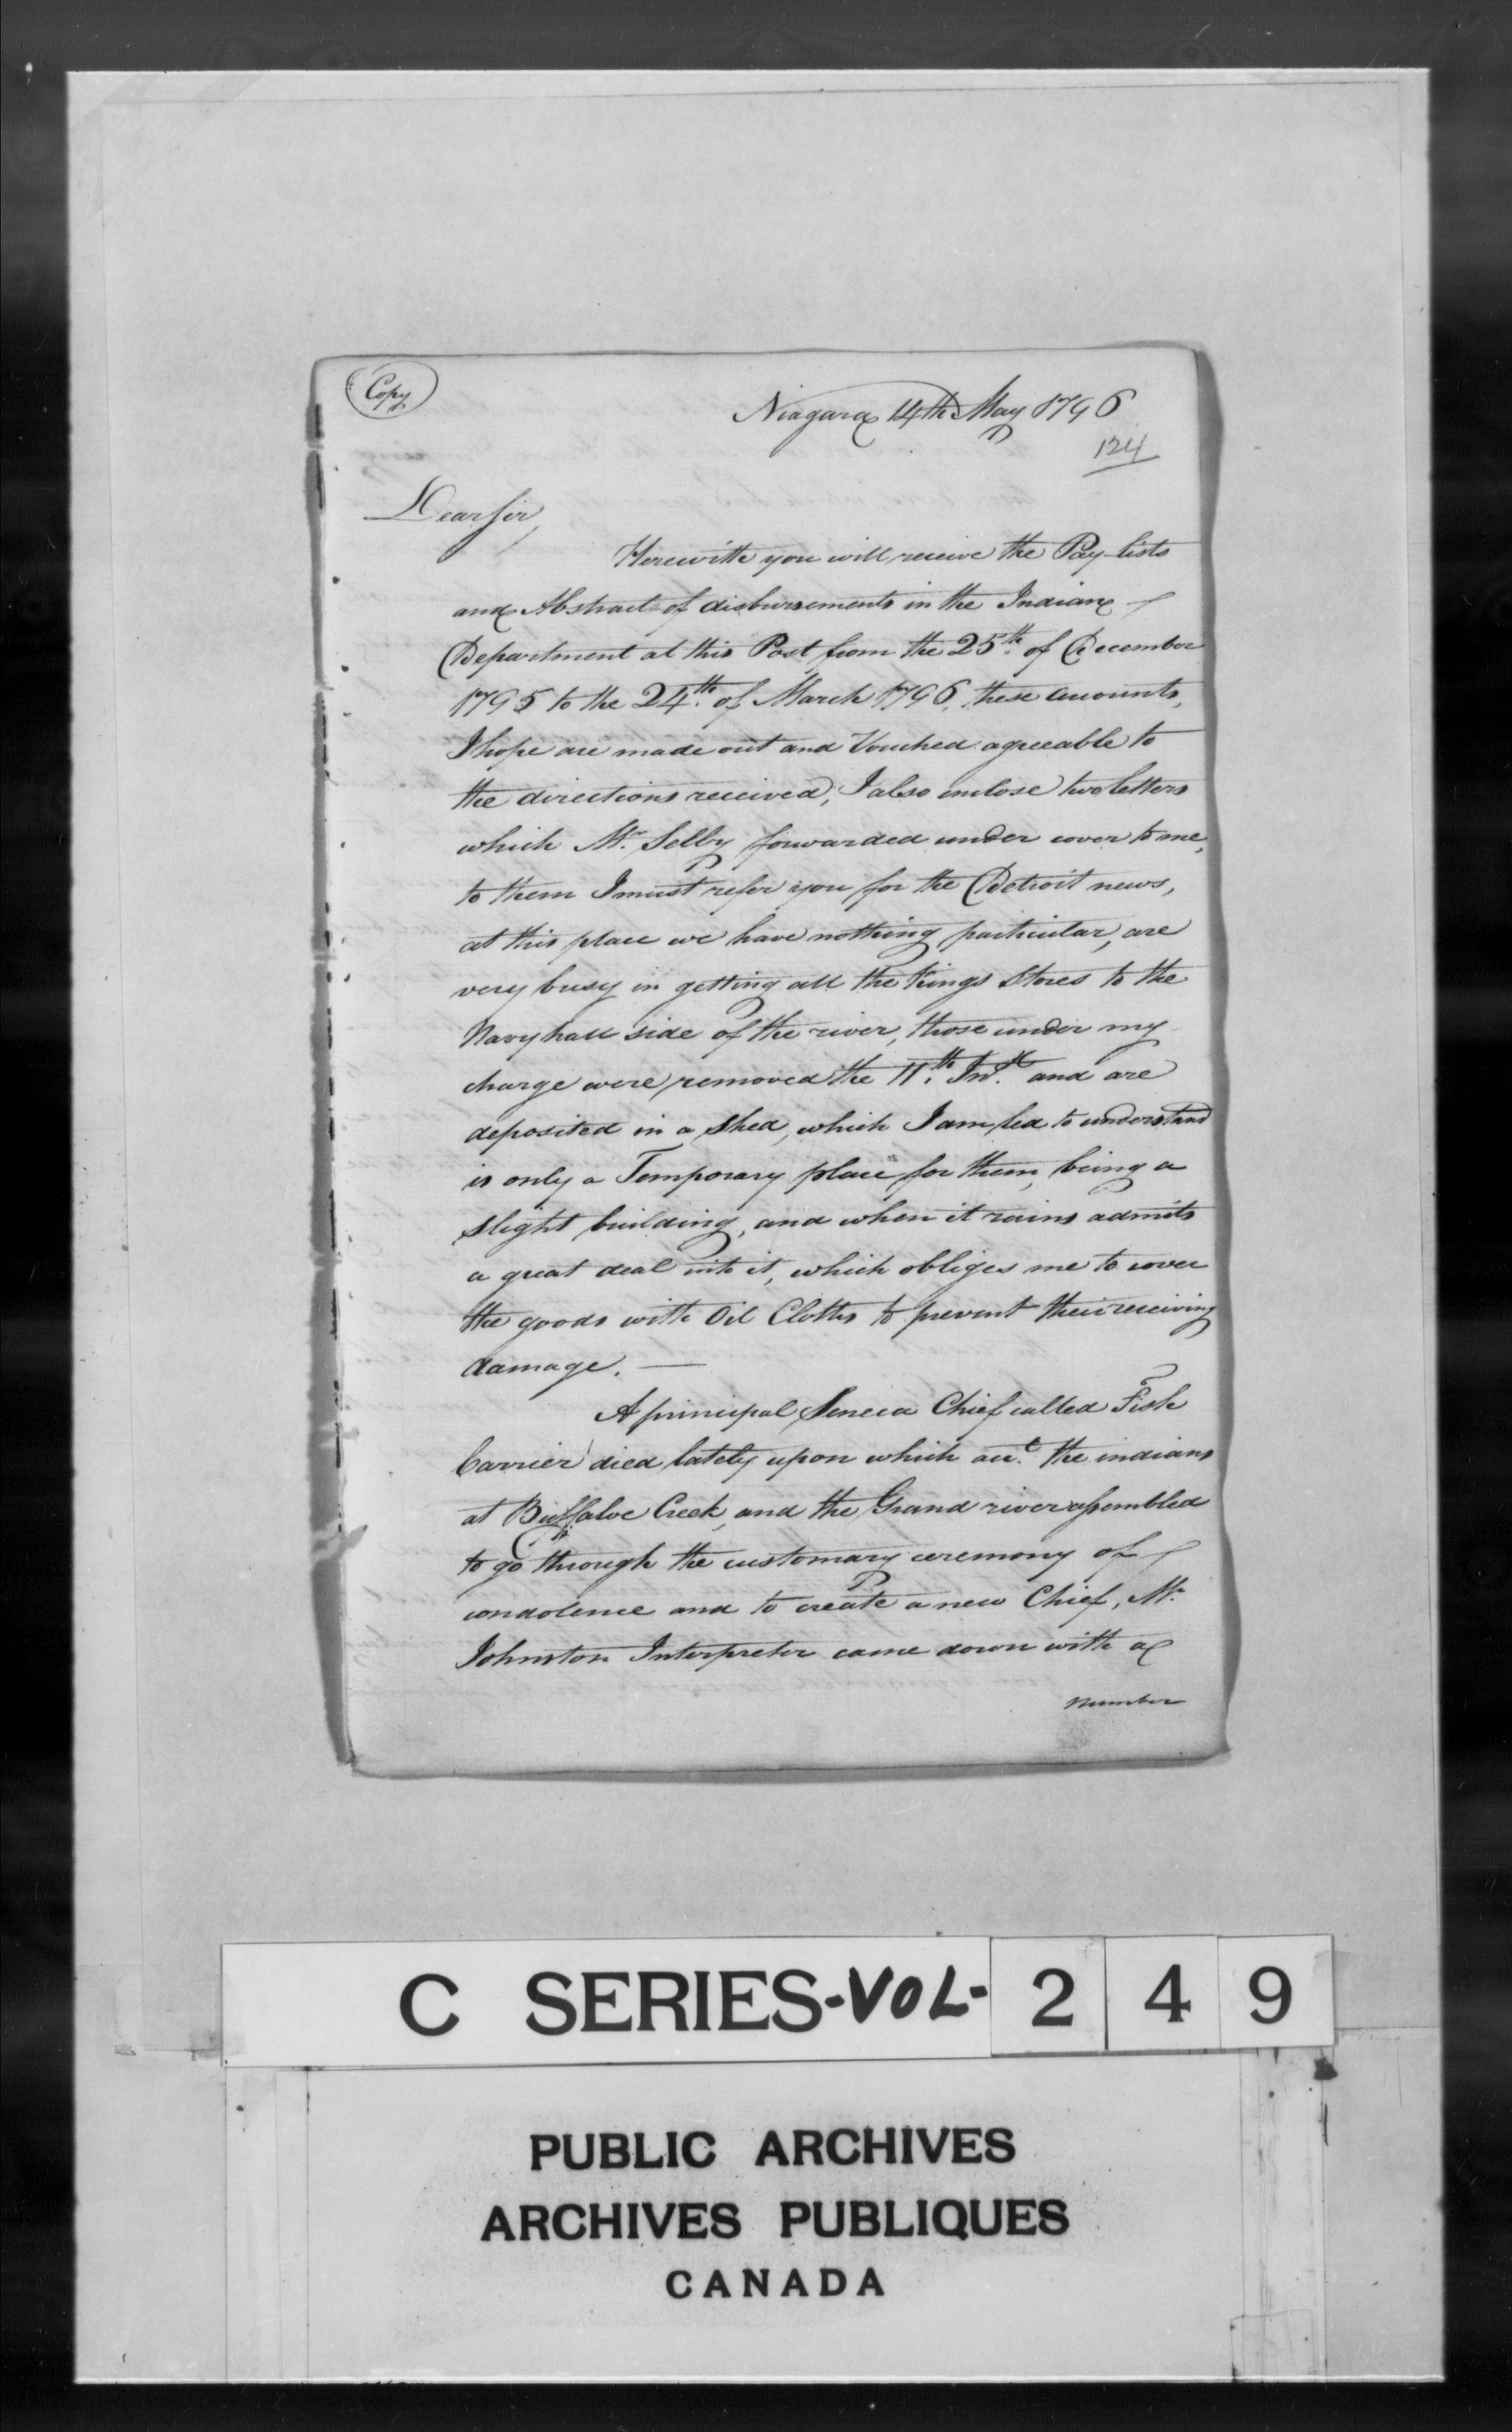 Copy
Niagara 14th May 1796
124
Dear Sir,
Herewith you will receive the Pay-lists
and Abstract of disbursements in the Indian
Department at this Post from the 25th of December
1795 to the 24th of March 1796, these accounts,
I hope are made out and Vouched agreeable to
the directions received, I also enclose two letters
which Mr. Selby forwarded under cover to me,
to them I must refer you for the Detroit news,
at this place we have nothing particular, are
very busy in getting all the Kings Stores to the
Navy hall side of the river, those under my
charge were removed the 11th Inst. and are
deposited in a Shed, which I am led to understand
is only a Temporary place for them, being a
slight building, and when it rains admits
a great deal into it, which obliges me to cover
the goods with Oil Cloths to prevent their receiving
damage. —
A principal Seneca Chief called Fish
Carrier died lately upon which acct. the indians
at Buffaloe Creek, and the Grand river assembled
to go through the customary ceremony of
condolence and to create a new Chief, Mr.
Johnston Interpreter came down with a
number
C SERIES-VOL-249
PUBLIC ARCHIVES
ARCHIVES PUBLIQUES
CANADA